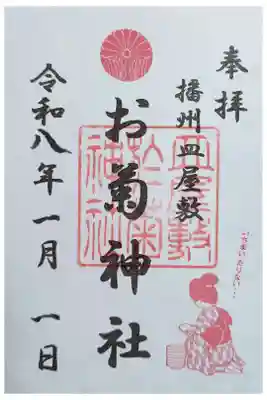 奉拝
播州皿屋敷
皿屋敷
於菊
神社
お菊神社
いちまいたりない…
令和八年一月一日